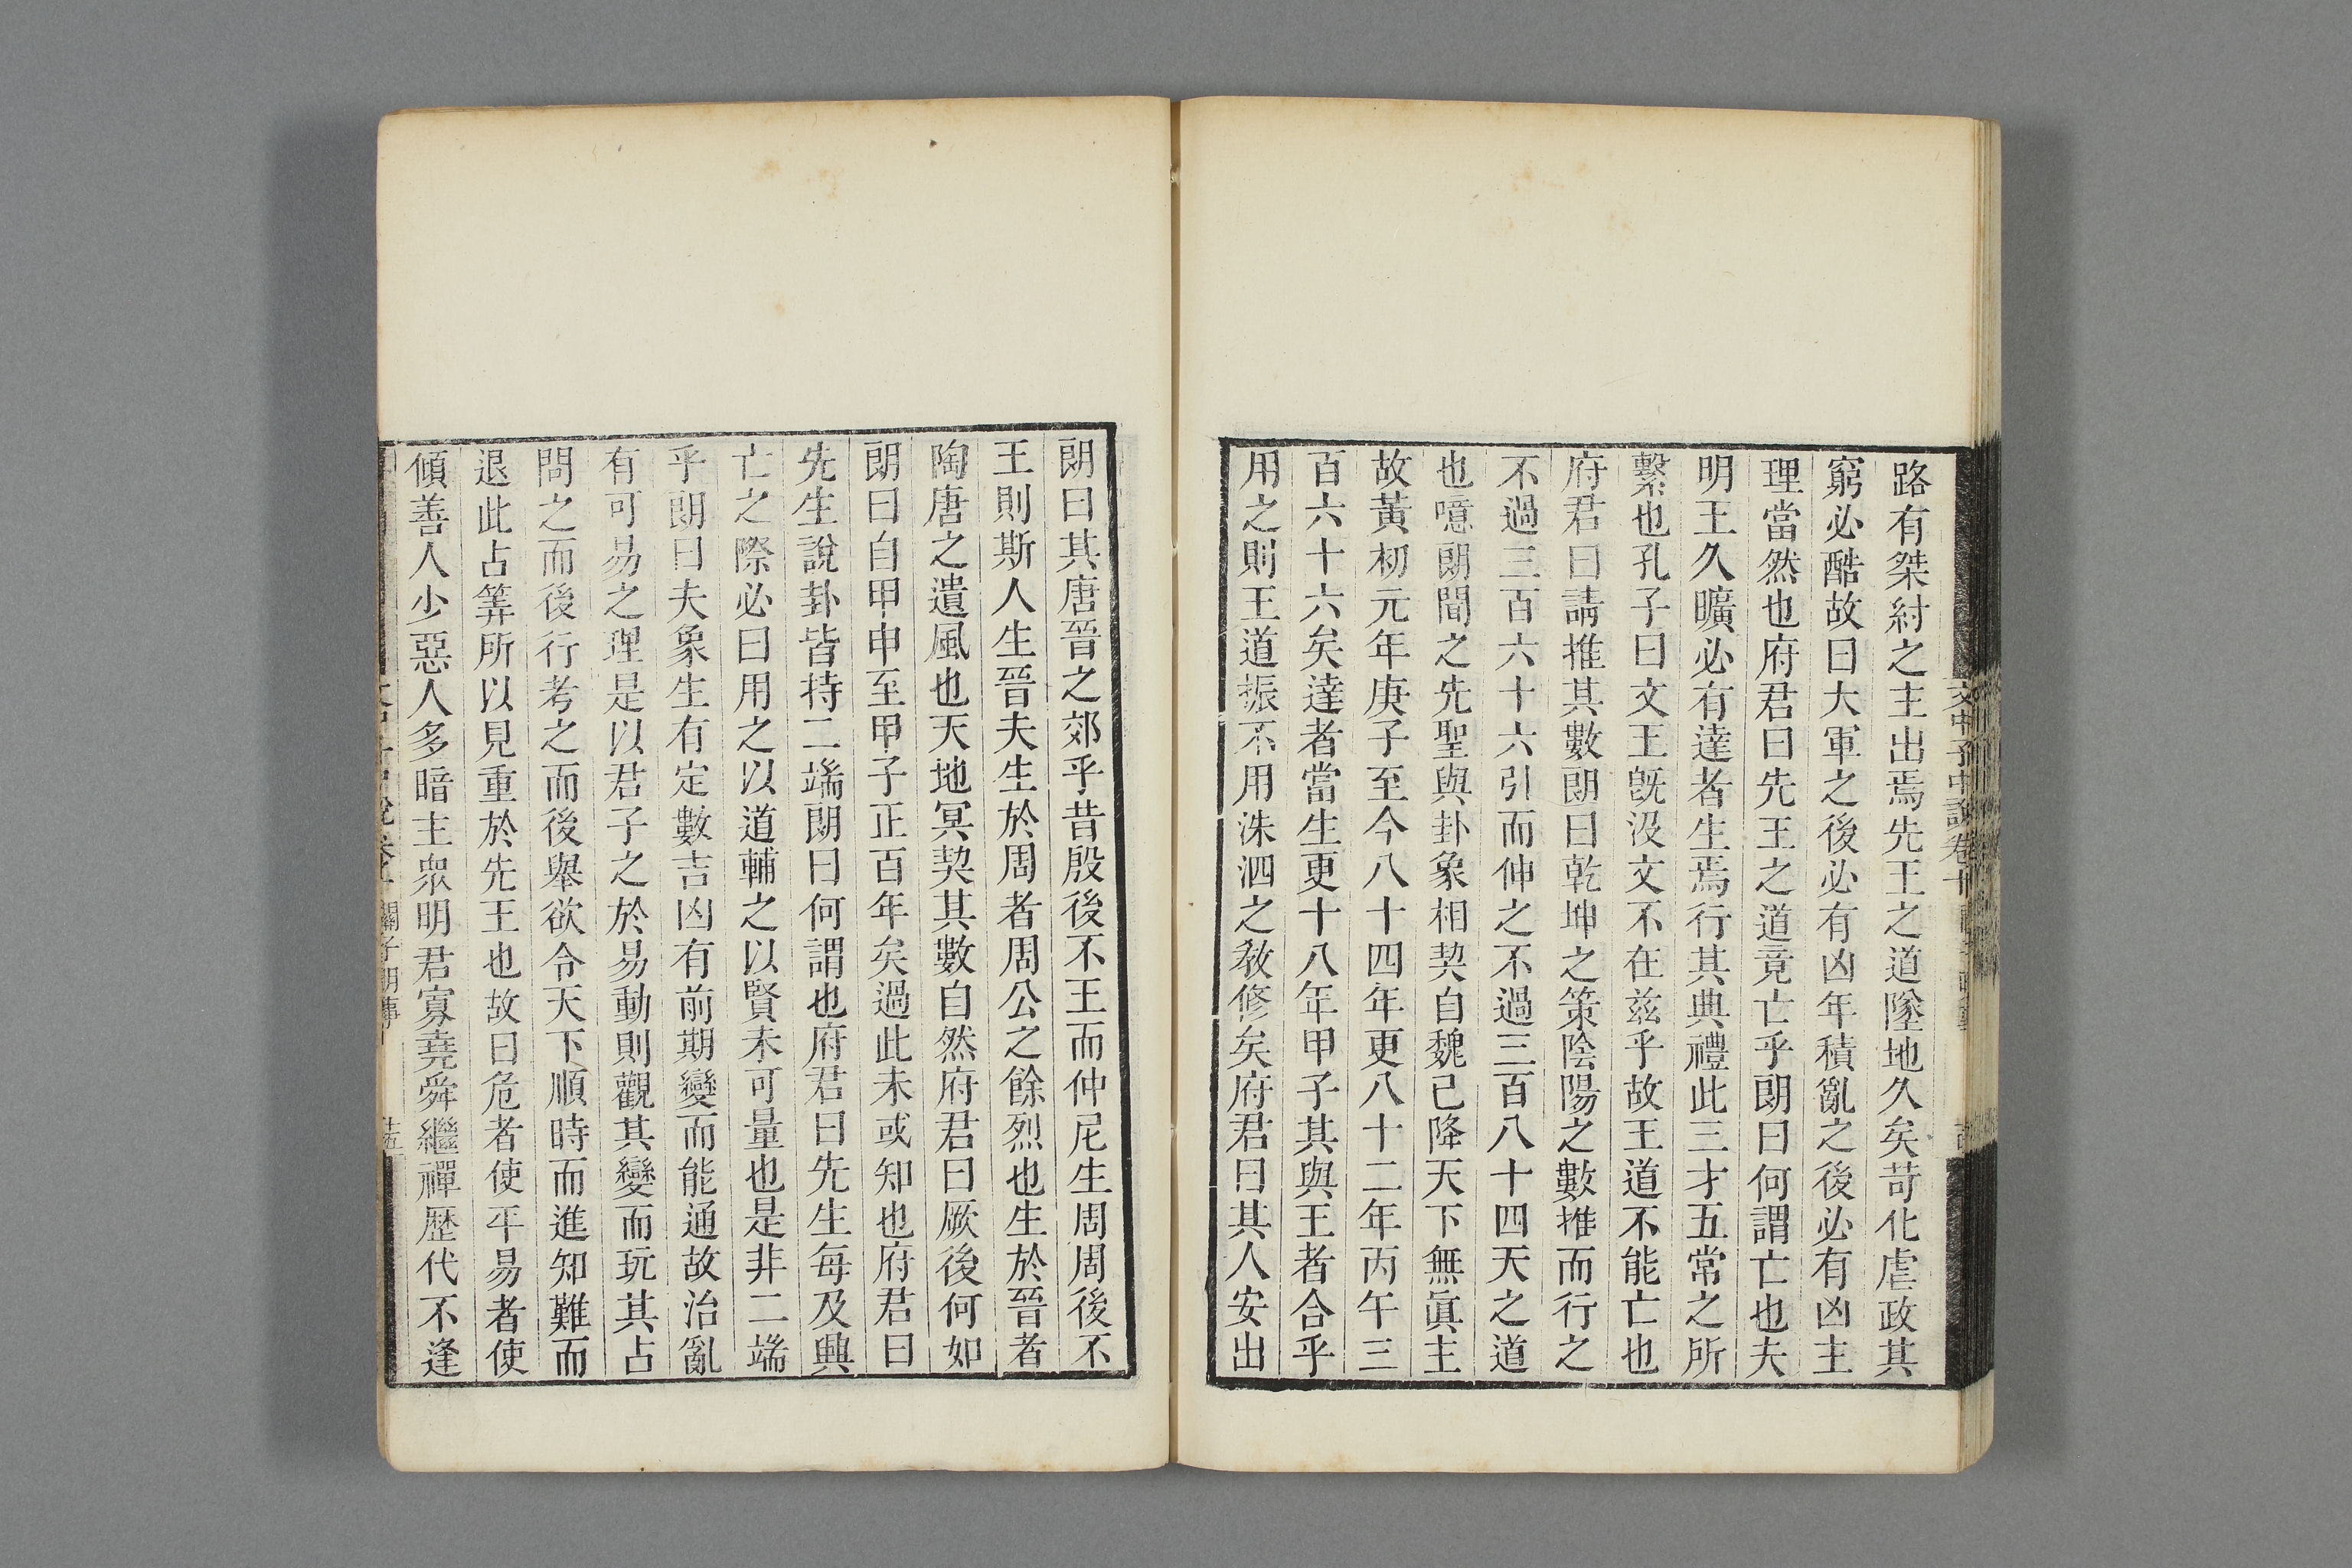 路有桀紂之主出焉先王之道墬地久矣苛化虐政其
窮必酷故曰大軍之後必有凶年積亂之後必有凶主
理當然也府君曰先王之道竟亡乎朗曰何謂亡也夫
明王久曠必有達者生焉行其典禮此三才五常之所
繫也孔子曰文王旣沒文不在兹乎故王道不能亡也
府君曰請推其數朗曰乾坤之策陰陽之數推而行之
不過三百六十六引而伸之不過三百八十四天之道
也噫朗聞之先聖與卦象相契自魏已降天下無眞主
故黃初元年庚子至今八十四年更八十二年丙午三
百六十六矣達者當生更十八年甲子其與王者合乎
用之則王道振不用洙泗之敎修矣府君曰其人安出
文中子中說卷十
朗曰其唐晉之郊乎昔殷後不王而仲尼生周周後不
王則斯人生晉夫生於周者周公之餘烈也生於晉者
陶唐之遺風也天地冥契其數自然府君曰厥後何如
朗曰自甲申至甲子正百年矣過此未或知也府君曰
先生說卦皆持二端朗曰何謂也府君曰先生每及興
亡之際必曰用之以道輔之以賢未可量也是非二端
乎朗曰夫象生有定數吉凶有前期變而能通故治亂
有可易之理是以君子之於易動則觀其變而玩其占
問之而後行考之而後舉欲令天下順時而進知難而
退此占筭所以見重於先王也故曰危者使平易者使
傾善人少惡人多暗主衆明君寡堯舜繼禪歷代不逢
關子明事